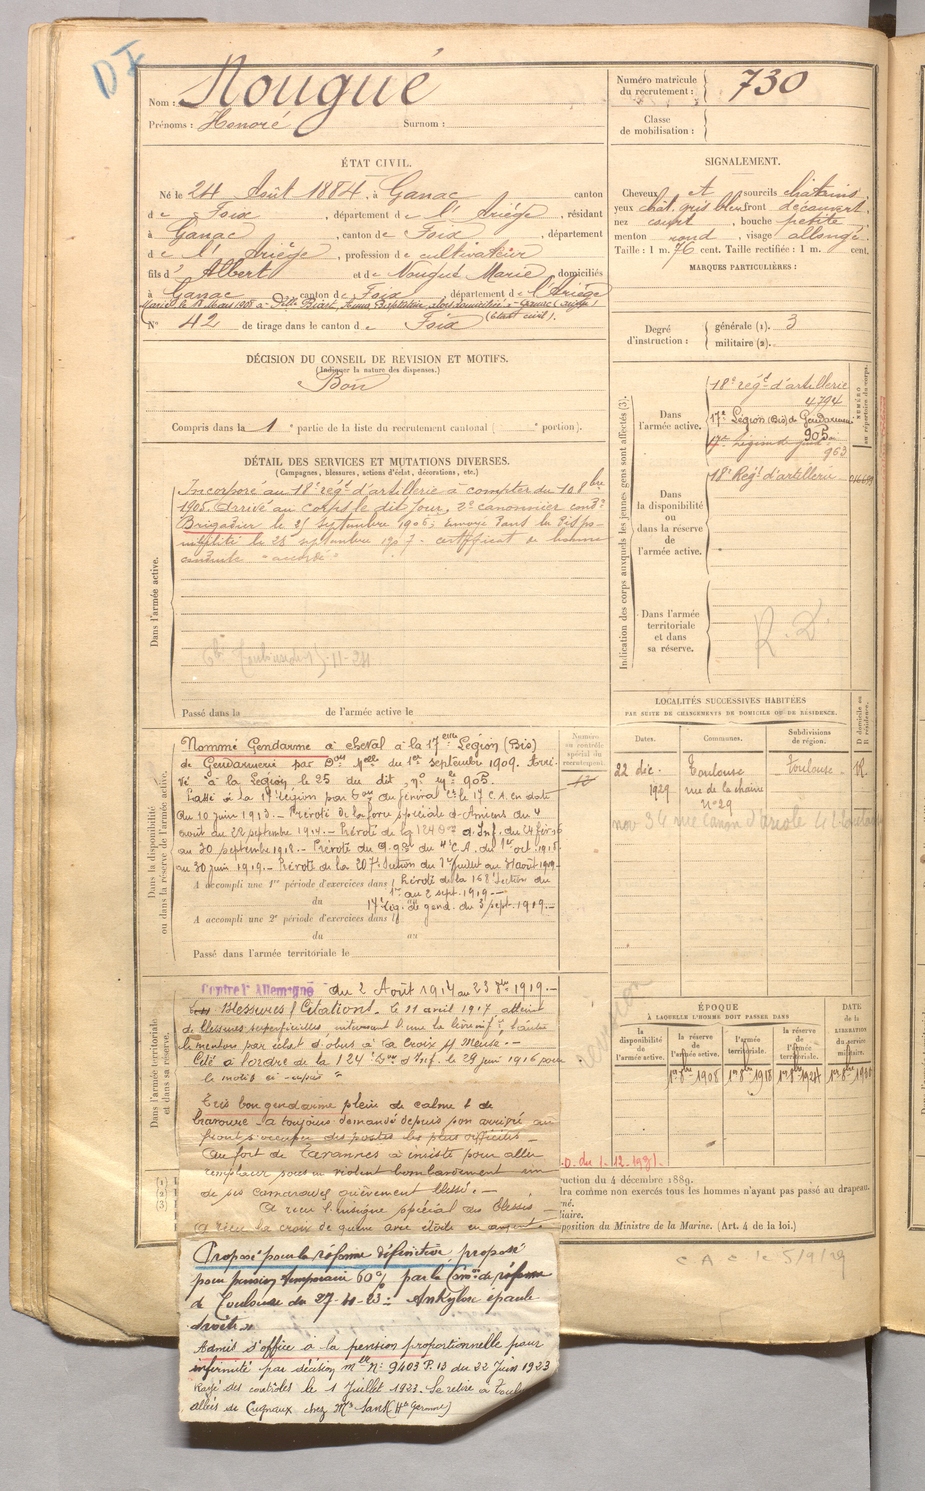 Nom : Nougué
Prénoms : Honoré Surnom :
Numéro matricule du recrutement : 730
Classe de mobilisation :
ÉTAT CIVIL.
Né le 24 Août 1884, à Ganac canton
de Foix, département de l'Ariège, résidant
à Ganac, canton de Foix, département
de l'Ariège, profession de cultivateur
fils d' Albert et de Nougué Marie domiciliés
à Ganac canton de Foix, département de l'Ariège
(état civil).
N° 42 de tirage dans le canton de Foix
SIGNALEMENT.
Cheveux et sourcils châtains
yeux chât. gris bleu front découvert,
nez court, bouche petite,
menton rond, visage allongé.
Taille : 1 m. 76 cent. Taille rectifiée : 1 m. cent.
MARQUES PARTICULIÈRES :
Degré d'instruction : générale (1). 3
militaire (2).
DÉCISION DU CONSEIL DE REVISION ET MOTIFS.
(Indiquer la nature des dispenses.)
Bon
Compris dans la 1e partie de la liste du recrutement cantonal ( e portion).
DÉTAIL DES SERVICES ET MUTATIONS DIVERSES.
(Campagnes, blessures, actions d'éclat, décorations, etc.)
Dans l'armée active.
Incorporé au 18e régt d'artillerie à compter du 10 8bre
1905. Arrivé au corps le dit jour, 2e canonnier condr
Brigadier le 25 septembre 1906, envoyé dans la dispo-
nibilité le 28 septembre 1907. certificat de bonne
conduite "accordé"
Passé dans la de l'armée active le
Indication des corps auxquels les jeunes gens sont affectés (3).
NUMÉRO au répertoire du corps.
Dans l'armée active.
18e régt d'artillerie
4794
17e Légion (Bis) de Gendarmerie
905
963
Dans la disponibilité ou dans la réserve de l'armée active.
18e Régt d'artillerie
Dans l'armée territoriale et dans sa réserve.
R. D.
Dans la disponibilité ou dans la réserve de l'armée active.
Nommé Gendarme à cheval à la 17eme Légion (Bis)
de Gendarmerie par Don Melle du 1er septembre 1909. Arri-
vé à la Légion le 25 du dit, no mle 905.
Passé à la 17e Légion par don du général Ct le 17 C.A. en date
du 10 juin 1913. – Prévôté de la force spéciale d'Amiens du 4
août au 22 septembre 1914. – Prévôté de la 124 Don d'Inf. du 24 fér 1916
au 30 septembre 1918. – Prévôté du Q.G. du 4e C.A. du 1er oct. 1918
au 30 juin 1919. – Prévôté de la 207e Section du 1er Juillet au 31 août 1919 –
A accompli une 1re période d'exercices dans l
Prévôté de la 168e Section du
1er au 2 sept. 1919. –
du
17e Lég. de gend. du 3 sept. 1919. –
A accompli une 2e période d'exercices dans l
du au
Passé dans l'armée territoriale le
Numéro au contrôle spécial du recrutement.
LOCALITÉS SUCCESSIVES HABITÉES
PAR SUITE DE CHANGEMENTS DE DOMICILE OU DE RÉSIDENCE.
Dates. Communes. Subdivisions de région. D domicile ou R résidence.
22 déc. 1929 Toulouse rue de la chaine n° 29 Toulouse R.
Dans l'armée territoriale et dans sa réserve.
Contre l'Allemagne du 2 Août 1914 au 23 8bre 1919. –
Blessures / Citations. Le 11 avril 1917 atteint
de blessures superficielles, intéressant l'une la lèvre infre, l'autre
le menton par éclat d'obus à La Croix s/ Meuse. –
Cité à l'ordre de la 124e Don d'Inf. le 29 juin 1916 pour
le motif ci-après "
Très bon gendarme plein de calme & de
bravoure – a toujours demandé depuis son arrivée au
front s'occuper des postes les plus difficiles –
Au fort de Tavannes a insisté pour aller
remplacer sous un violent bombardement un
de ses camarades grièvement blessé. –
A reçu l'insigne spécial des blessés –
A reçu la croix de guerre avec étoile en argent –
Proposé pour la réforme définitive, proposé
pour pension temporaire 60% par la Comon de réforme
de Toulouse du 27-4-23 : Ankylose épaule
droite »
Admis d'office à la pension proportionnelle pour
infirmité par décision mlle No 9403 P.13 du 22 Juin 1923
Rayé des contrôles le 1 Juillet 1923. Se retire à Toul
allées de Cugnaux chez Mr Sans (Hte Garonne)
ÉPOQUE
À LAQUELLE L'HOMME DOIT PASSER DANS
la disponibilité de l'armée active. la réserve de l'armée active. l'armée territoriale. la réserve de l'armée territoriale.
DATE de la LIBÉRATION du service militaire.
1er 8bre 1908
.o. du 1.12.1931.
uction du 4 décembre 1889.
dra comme non exercés tous les hommes n'ayant pas passé au drapeau.
position du Ministre de la Marine. (Art. 4 de la loi.)
5/9/29